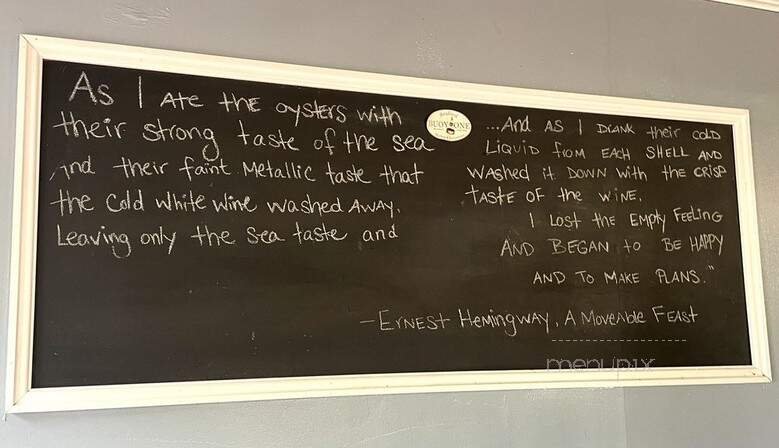 As I Ate the oysters with
their strong taste of the sea
And their faint Metallic taste that
the Cold white wine washed AWAY,
Leaving only the Sea taste and
BUOY ONE
...And AS I DRANK their COLD
LIQUID from EACH SHELL AND
washed it DOWN with the CRISP
TASTE OF the WINE,
I LOST the EMPty FEELING
AND BEGAN to BE HAPPY
AND TO MAKE PLANS."
-ERNEST HEMINGWAY, A MOVEABLE FEAST
menupix